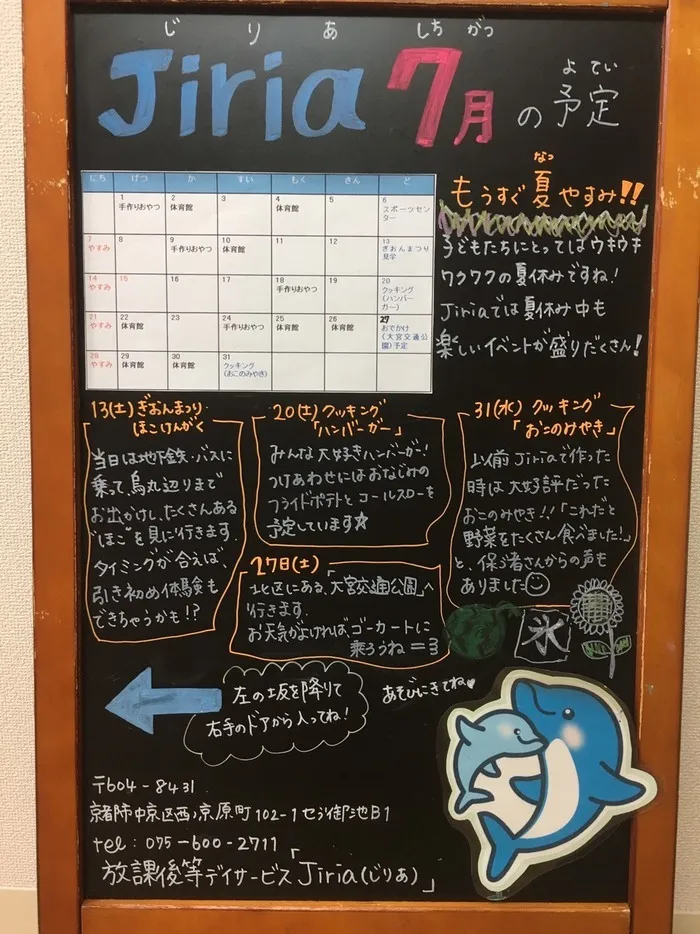 じりあ しちがつ
Jiria 7月の予定
よてい
にち げつ か すい もく きん ど
1 手作りおやつ 2 体育館 3 4 体育館 5 6 スポーツセンター
7 やすみ 8 9 手作りおやつ 10 体育館 11 12 13 ぎおんまつり見学
14 やすみ 15 16 17 18 手作りおやつ 19 20 クッキング(ハンバーガー)
21 やすみ 22 体育館 23 24 手作りおやつ 25 体育館 26 体育館 27 おでかけ(大宮交通公園)予定
28 やすみ 29 体育館 30 体育館 31 クッキング(おこのみやき)
なつ
もうすぐ夏やすみ!!
子どもたちにとってはウキウキ
ワクワクの夏休みですね!
Jiriaでは夏休み中も
楽しいイベントが盛りだくさん!
13(土)ぎおんまつり
ほこけんがく
当日は地下鉄・バスに
乗って、烏丸辺りまで
お出かけし、たくさんある
"ほこ"を見に行きます.
タイミングが合えば
引き初め体験も
できちゃうかも!?
20(土)クッキング
「ハンバーガー」
みんな大好きハンバーガー!
つけあわせにはおなじみの
フライドポテトとコールスローを
予定しています☆
31(水) クッキング
「おこのみやき」
以前Jiriaで作った
時は大好評だった
おこのみやき!!「これだと
野菜をたくさん食べました!」
と、保ゴ者さんからの声も
ありました
27日(土)
北区にある、「大宮交通公園」へ
行きます.
お天気がよければ、ゴーカートに
乗ろうね=3
氷
左の坂を降りて
右手のドアから入ってね!
あそびにきてね♥
〒604-8431
京都市中京区西ノ京原町102-1 セラ御池B1
tel:075-600-2711
放課後等デイサービス「Jiria(じりあ)」